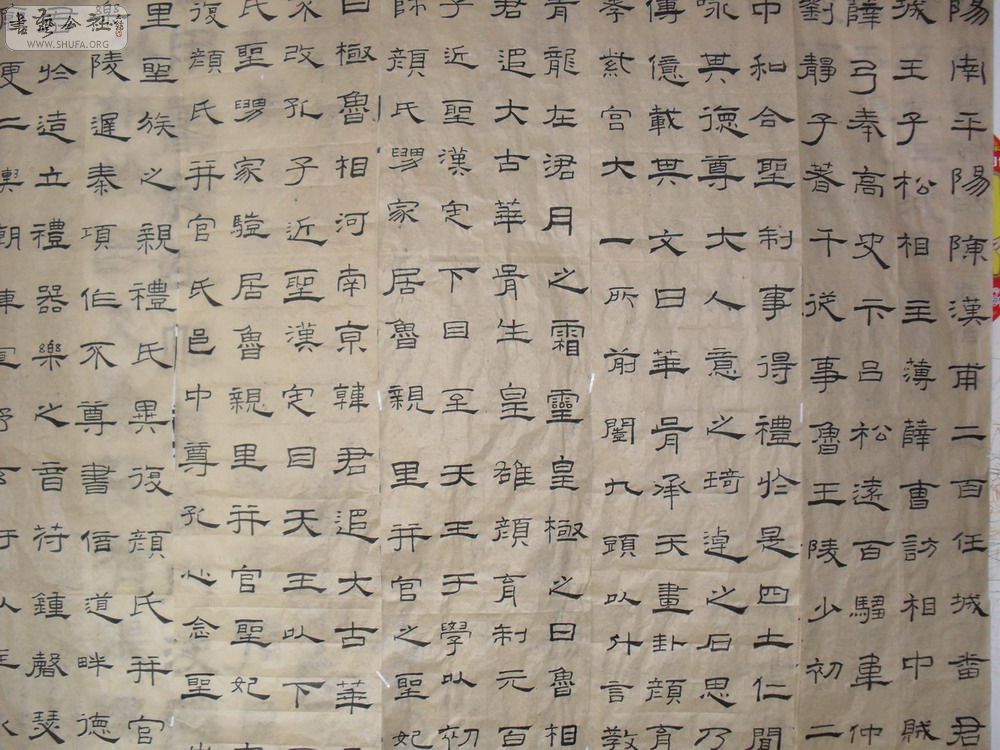 陽南平陽陳漢甫二百任城番君
城王子松相主薄薛曹訪相中賊
薛弓奉高史卞呂松遠百騶韋仲
劉靜子著千從事魯王陵少初二
中和合聖制事得禮於是四土仁聞
咏其德尊大人意之琦逴之石思乃
傳億載其文曰華胥承天畫卦顏育
孝紫宮大一所前闓九頭以升言教
青龍在涒月之霜靈皇極之日魯相
君追大古華胥生皇雄顏育制元百
于近聖漢定下目至天王于學以初
師顏氏舅家居魯親里并官之聖妃
日極魯相河南京韓君追大古華
家改孔子近聖漢定目天王以下
氏聖舅家驗居魯親里并官聖妃
復顏氏并官氏邑中尊孔心念聖
里聖族之親禮氏異復顏氏并官
陵遲秦項作不尊書倍道畔德
於造立禮器樂之音苻鍾磬瑟
更二輿朝車宣
書藝公社
WWW.SHUFA.ORG